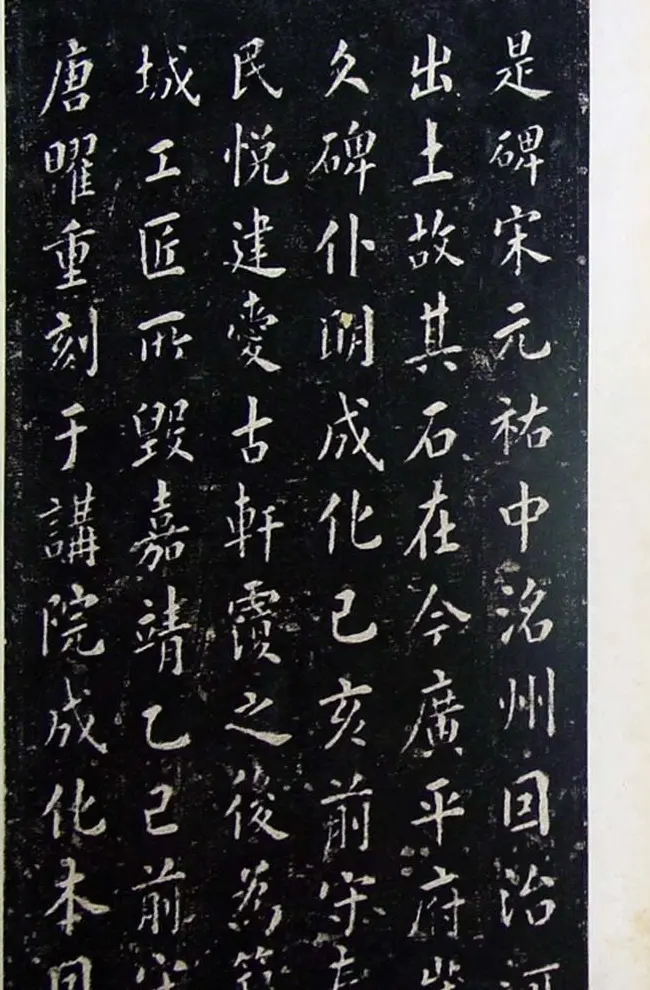 是碑宋元祐中洺州囙治河
出土故其石在今廣平府
久碑仆明成化己亥前守
民悅建愛古軒覆之後為
城工匠所毀嘉靖乙巳前守
唐曜重刻于講院成化本